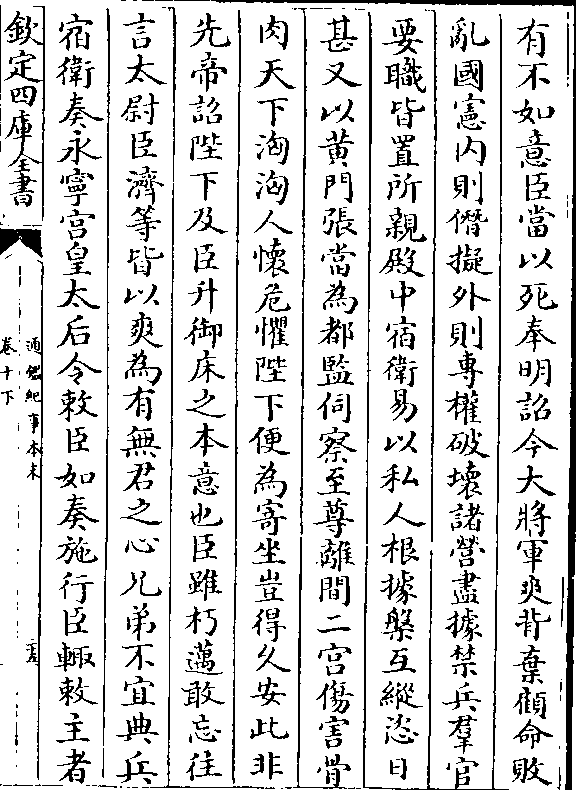 有不如意臣當以死奉明詔今大將軍爽背棄顧命敗
亂國憲内則僭擬外則專權破壞諸營盡據禁兵羣官
要職皆置所親殿中宿衛易以私人根據槃互縱恣日
甚又以黄門張當為都監伺察至尊離間二宫傷害骨
肉天下洶洶人懷危懼陛下便為寄坐豈得久安此非
先帝詔陛下及臣升御床之本意也臣雖朽邁敢忘往
言太尉臣濟等皆以爽為有無君之心兄弟不宜典兵
宿衛奏永寧宫皇太后令敕臣如奏施行臣輙敕主者
欽定四庫全書
通鑑紀事本末
卷十下